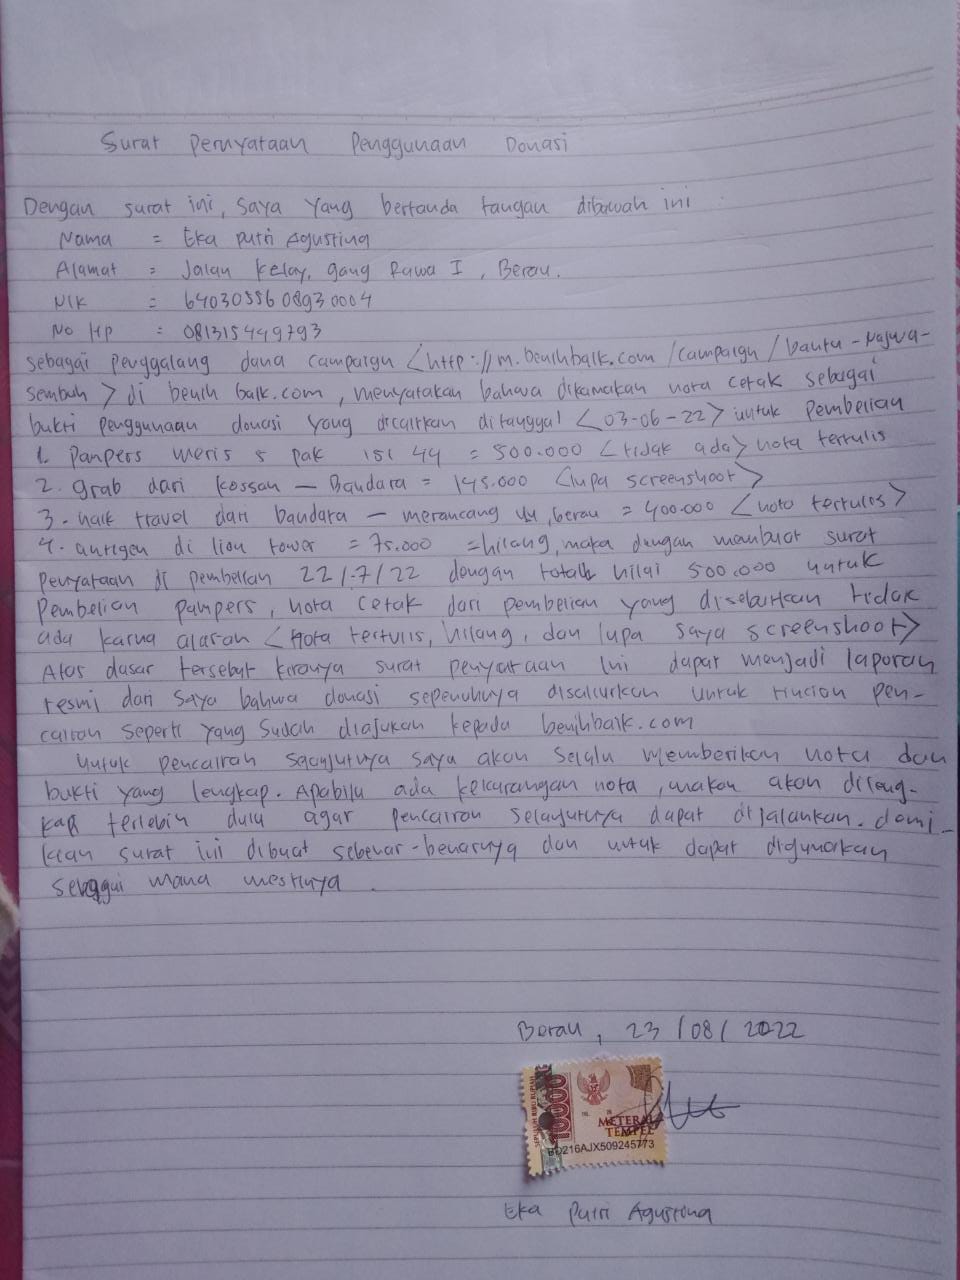 Surat Pernyataan Penggunaan Donasi
Dengan surat ini, saya yang bertanda tangan dibawah ini
Nama = Eka Putri Agustina
Alamat = Jalan Kelay, gang Rawa I, Berau.
NIK = 6403055608930004
No HP = 081315449793
sebagai penggalang dana campaign <http://m.benihbaik.com/campaign/bantu-Najwa-
sembuh> di benih baik.com, menyatakan bahwa dikarnakan nota cetak sebagai
bukti penggunaan donasi yang dicairkan ditanggal <03-06-22> untuk pembelian
1. Pampers meris 5 pak isi 44 = 500.000 <tidak ada> nota tertulis
2. grab dari kossan - Bandara = 145.000 <lupa screenshoot>
3. naik travel dari bandara - merancang , berau = 400.000 <nota tertulis>
4. antigen di lion tower = 75.000 = hilang, maka dengan membuat surat
Penyataan di pembelian 22/7/22 dengan total nilai 500.000 untuk
Pembelian pampers, nota cetak dari pembelian yang disebutkan tidak
ada karna alasan <Nota tertulis, hilang, dan lupa saya screenshoot>
Atas dasar tersebut kiranya surat penyataan ini dapat menjadi laporan
resmi dari saya bahwa donasi sepenuhnya disalurkan untuk rincian pen-
cairan seperti yang sudah diajukan kepada benihbaik.com
Untuk pencairan selanjutnya saya akan selalu memberikan nota dan
bukti yang lengkap. Apabila ada kekurangan nota, makan akan dileng-
kapi terlebih dulu agar pencairan selanjutnya dapat dijalankan. demi-
kian surat ini dibuat sebenar-benarnya dan untuk dapat digunakan
mana mestinya.
Berau, 23/08/2022
SEPULUH RIBU RUPIAH
10000
METERAI
TEMPEL
BD216AJX509245773
Eka Putri Agustina